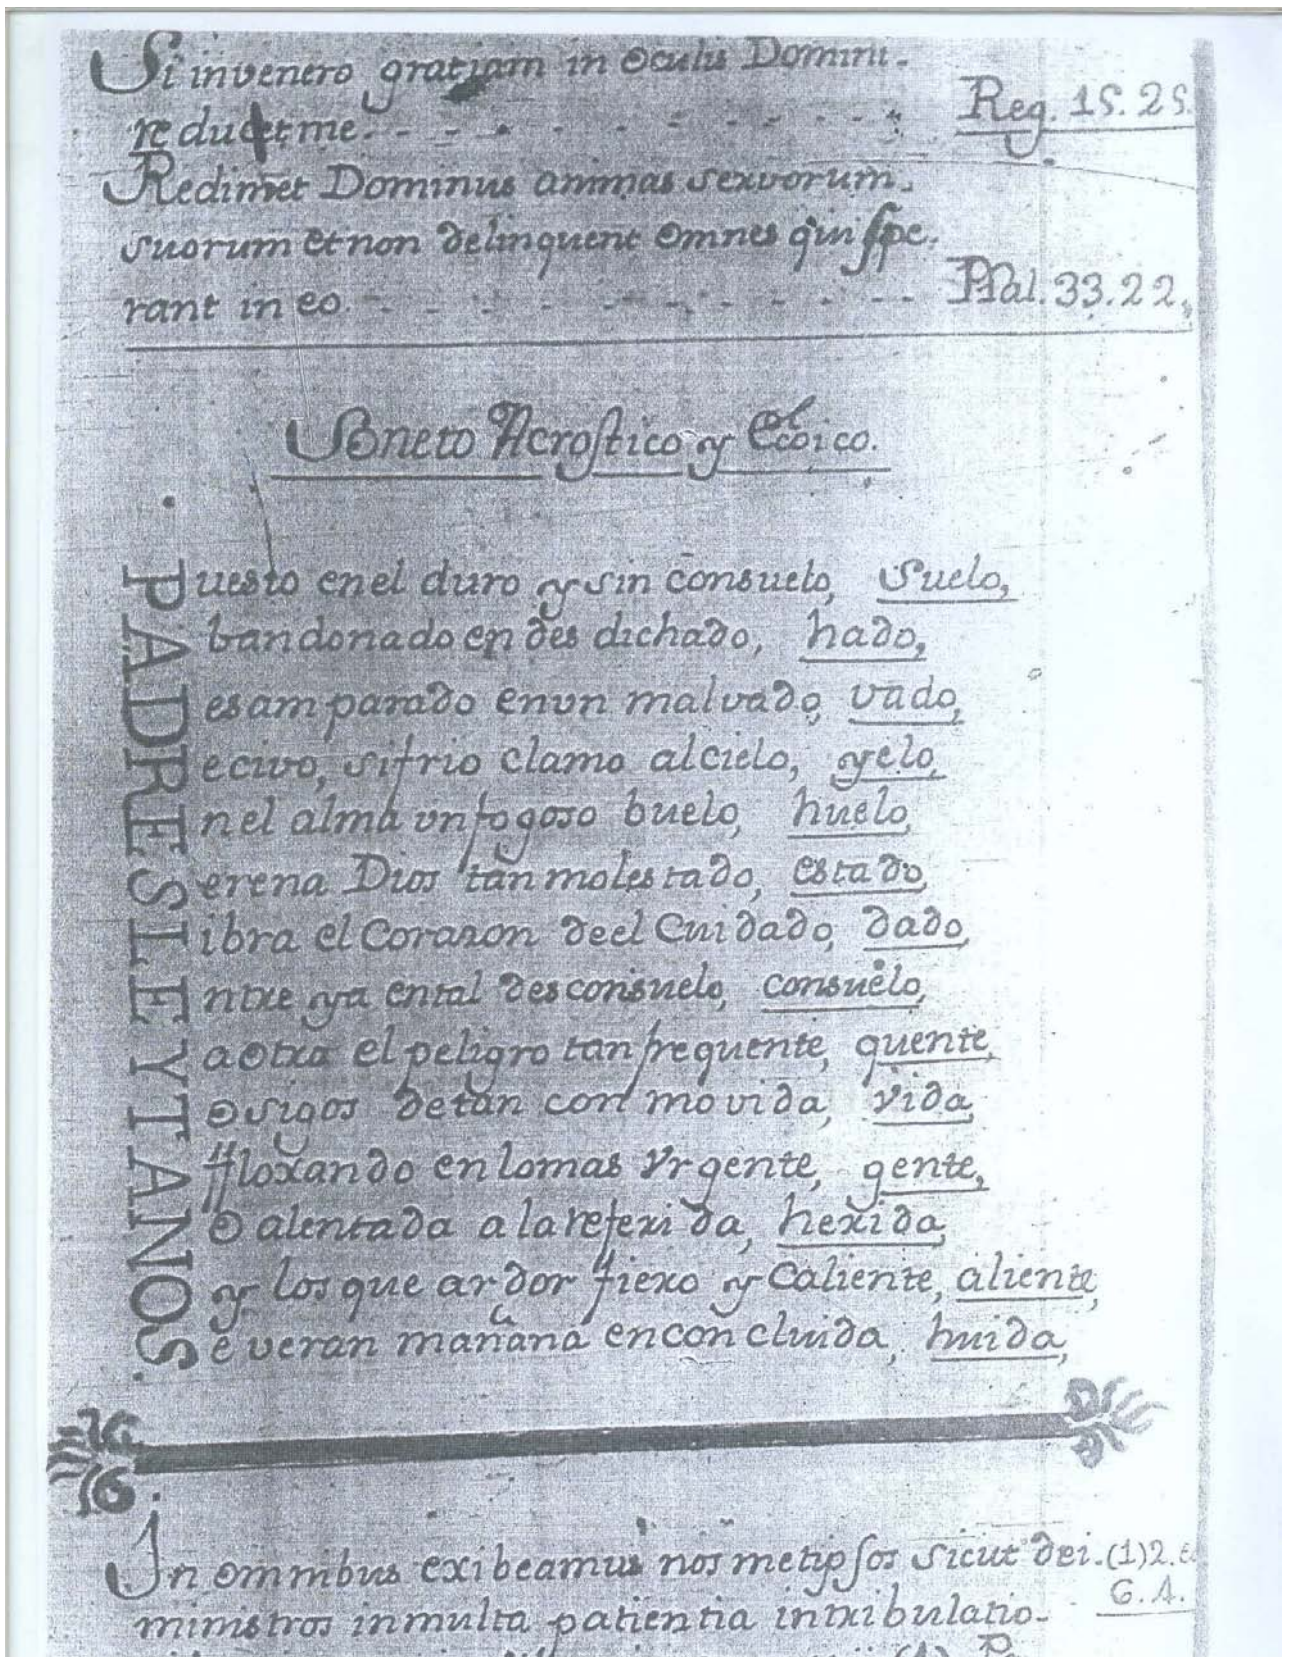 Si invenero gratiam in oculis Domini.
reducet me. Reg. 15. 25.
Redimet Dominus animas servorum.
suorum et non delinquent omnes qui spe.
rant in eo. Psal. 33. 22.
Soneto Acrostico y Ecoico.
PADRES LEYTANOS.
Puesto enel duro y sin consuelo, Suelo,
Abandonado en des dichado, hado,
Desamparado enun malvado, vado,
Recivo, si frio clamo alcielo, yelo,
Enel alma un fogoso buelo, huelo,
Serena Dios tan molestado, estado,
Libra el Corazon deel Cuidado, dado,
Entre ya ental desconsuelo, consuelo,
Ya otra el peligro tan frequente, quente,
Tosigos de tan conmovida, vida,
Affloxando en lo mas Vrgente, gente,
No alentada a la referida, herida,
Oy los que ardor fiero y Caliente, aliente,
Se veran mañana en concluida, huida,
In omnibus exibeamus nosmetipsos Sicut dei. (1) 2.
ministros in multa patientia in tribulatio- 6. 4.